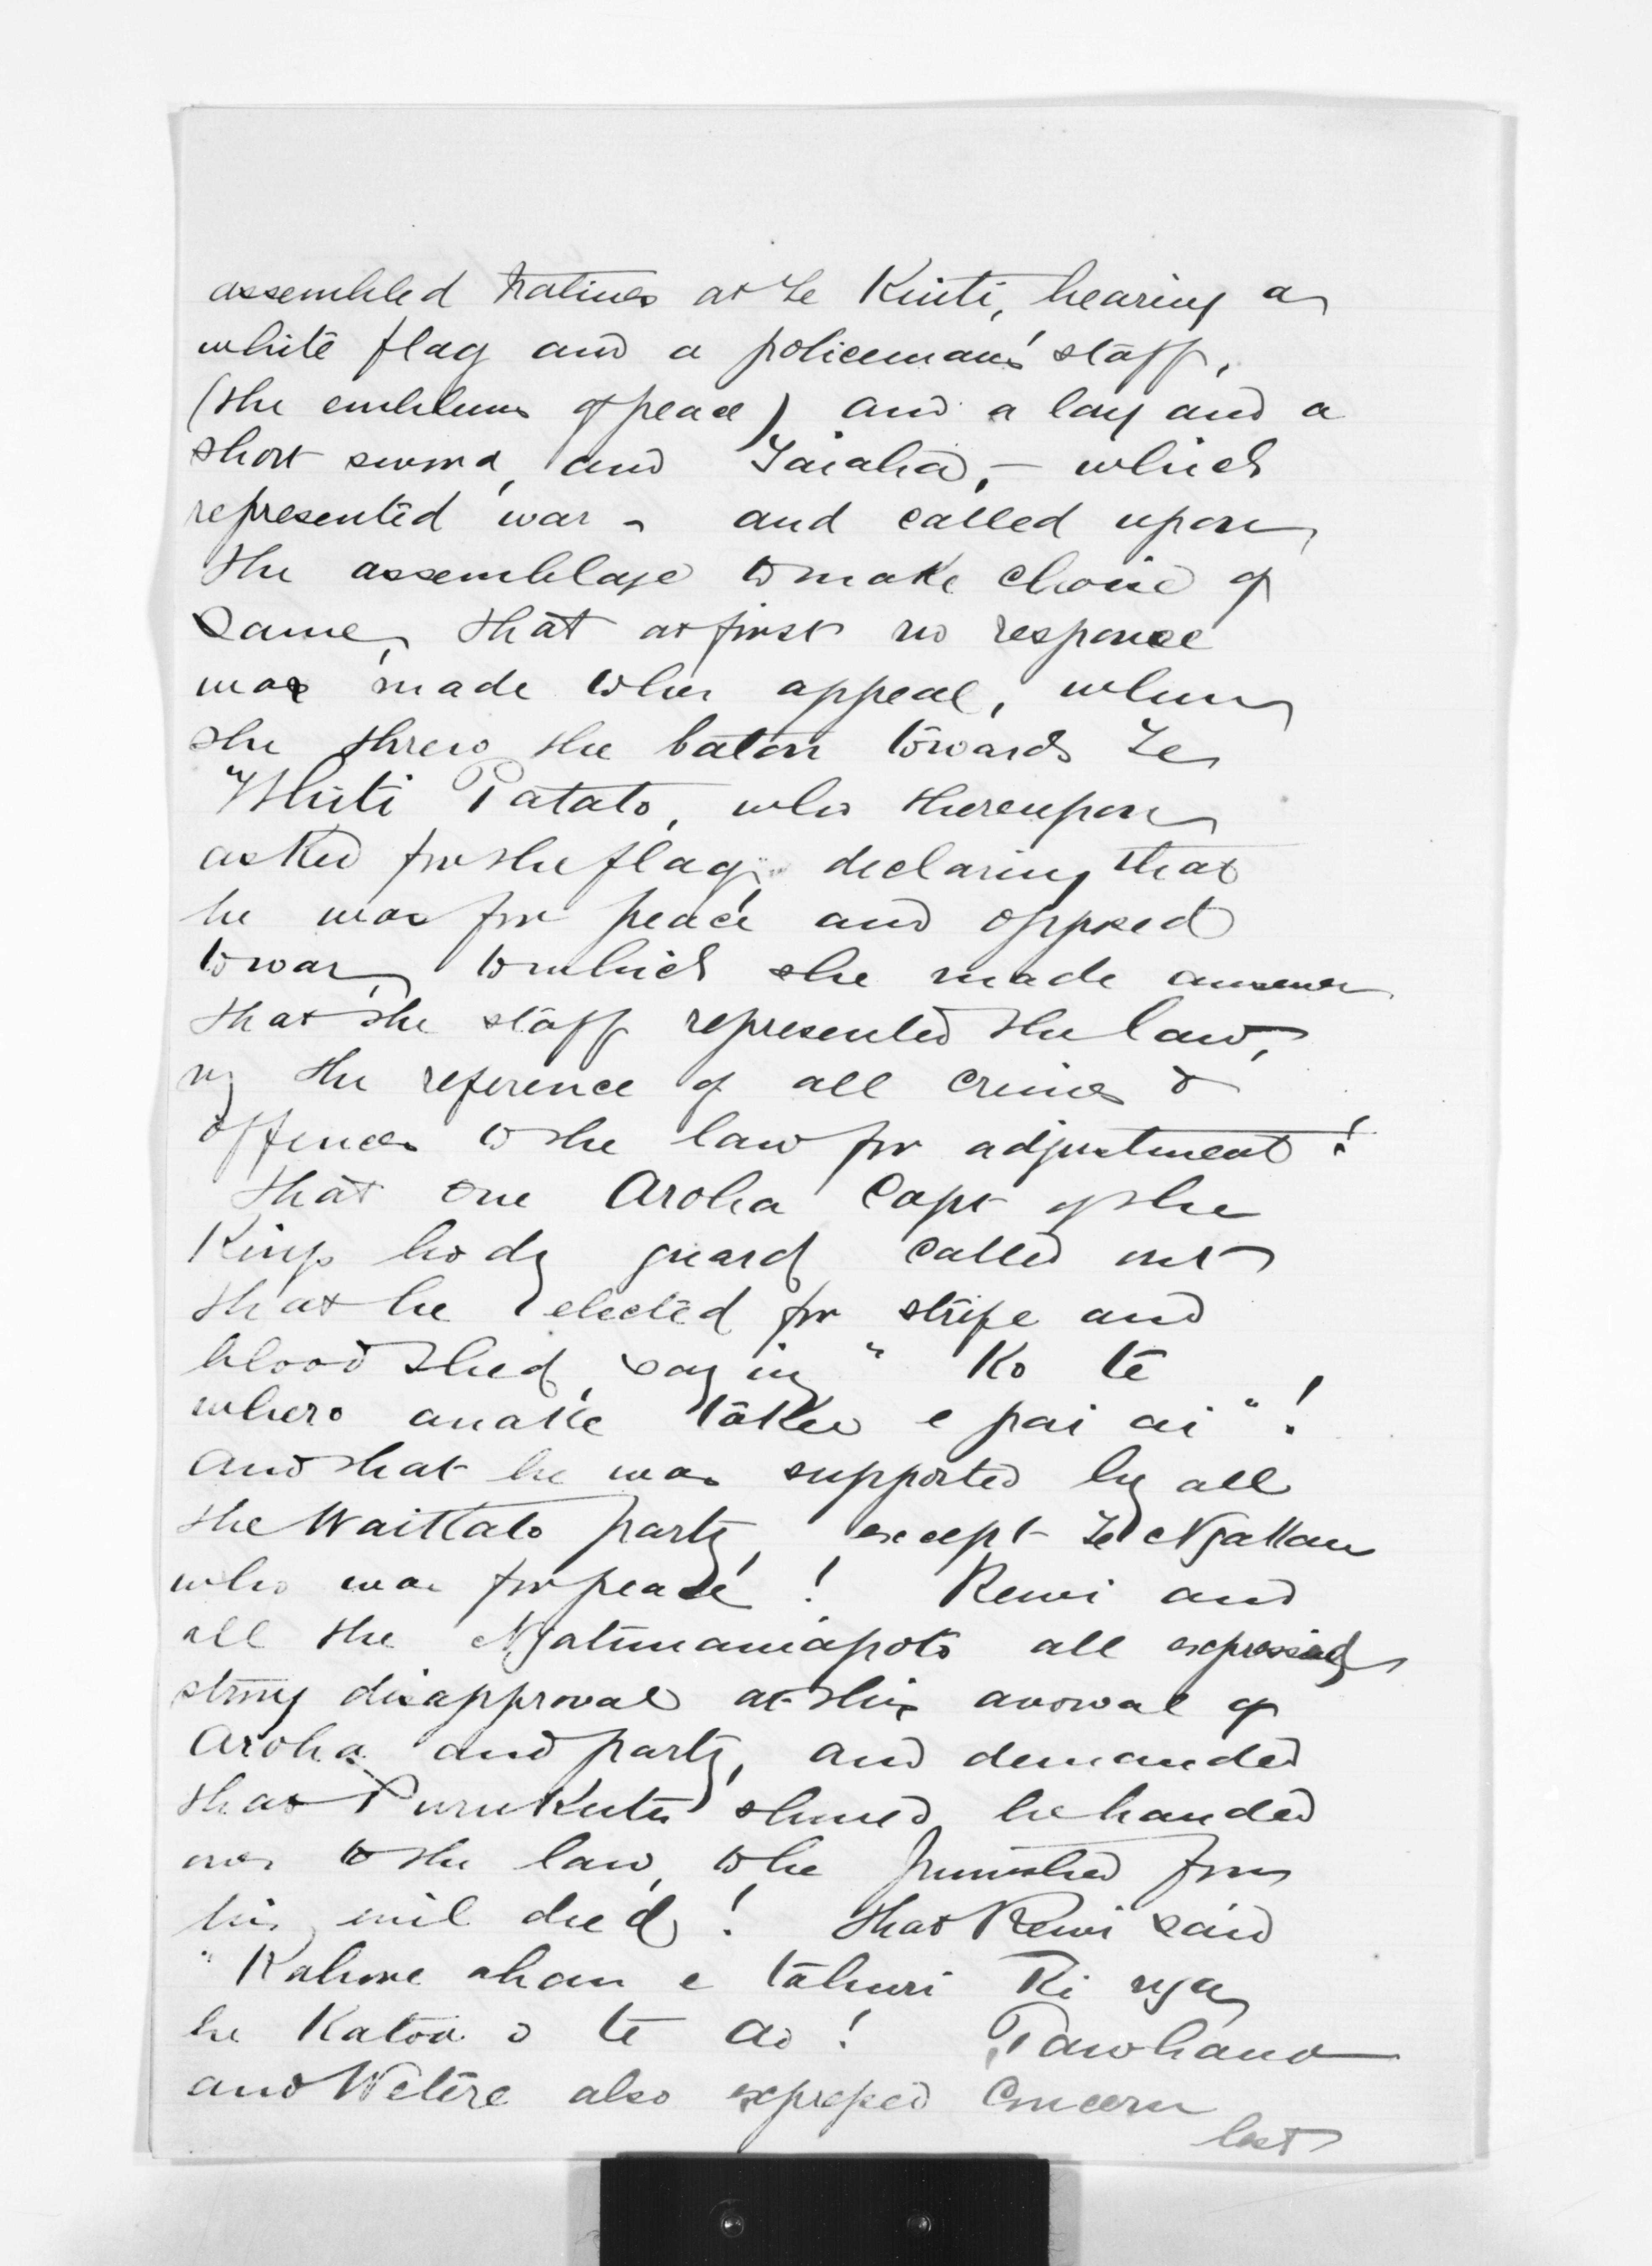 assembled Natives at Te Kuiti, bearing a
white flag and a policeman's staff,
(the emblems of peace) and a long and a
short sword, and Taiaha, - which
represented war - and called upon
the assemblage to make choice of
same, that at first no response
was made to her appeal, when
she threw the baton towards Te
Whiti Patato, who thereupon
asked for the flag declaring that
he was for peace and opposed
to war, to which she made answer
that the staff represented the law,
the reference of all crimes &
offences to the law for adjustment!
that one Aroha Capt of the
Kings body guard called out
that he elected for strife and
bloodshed, saying " Ko te
whero anake take e pai ai"!
and that he was supported by all
the Waikato party, except Te Ngakau
who was for peace! Rewi and
all the Ngatimaniapoto all expressed
strong disapproval at this avowal of
Aroha and party, and demanded
that Purukutu should be handed
over to the law, to be punished for
his evil deed! that Rewi said
" Kahore ahau e tahuri ki nga
he katoa o te ao! Tawhana
and Wetere also expressed concern
lest